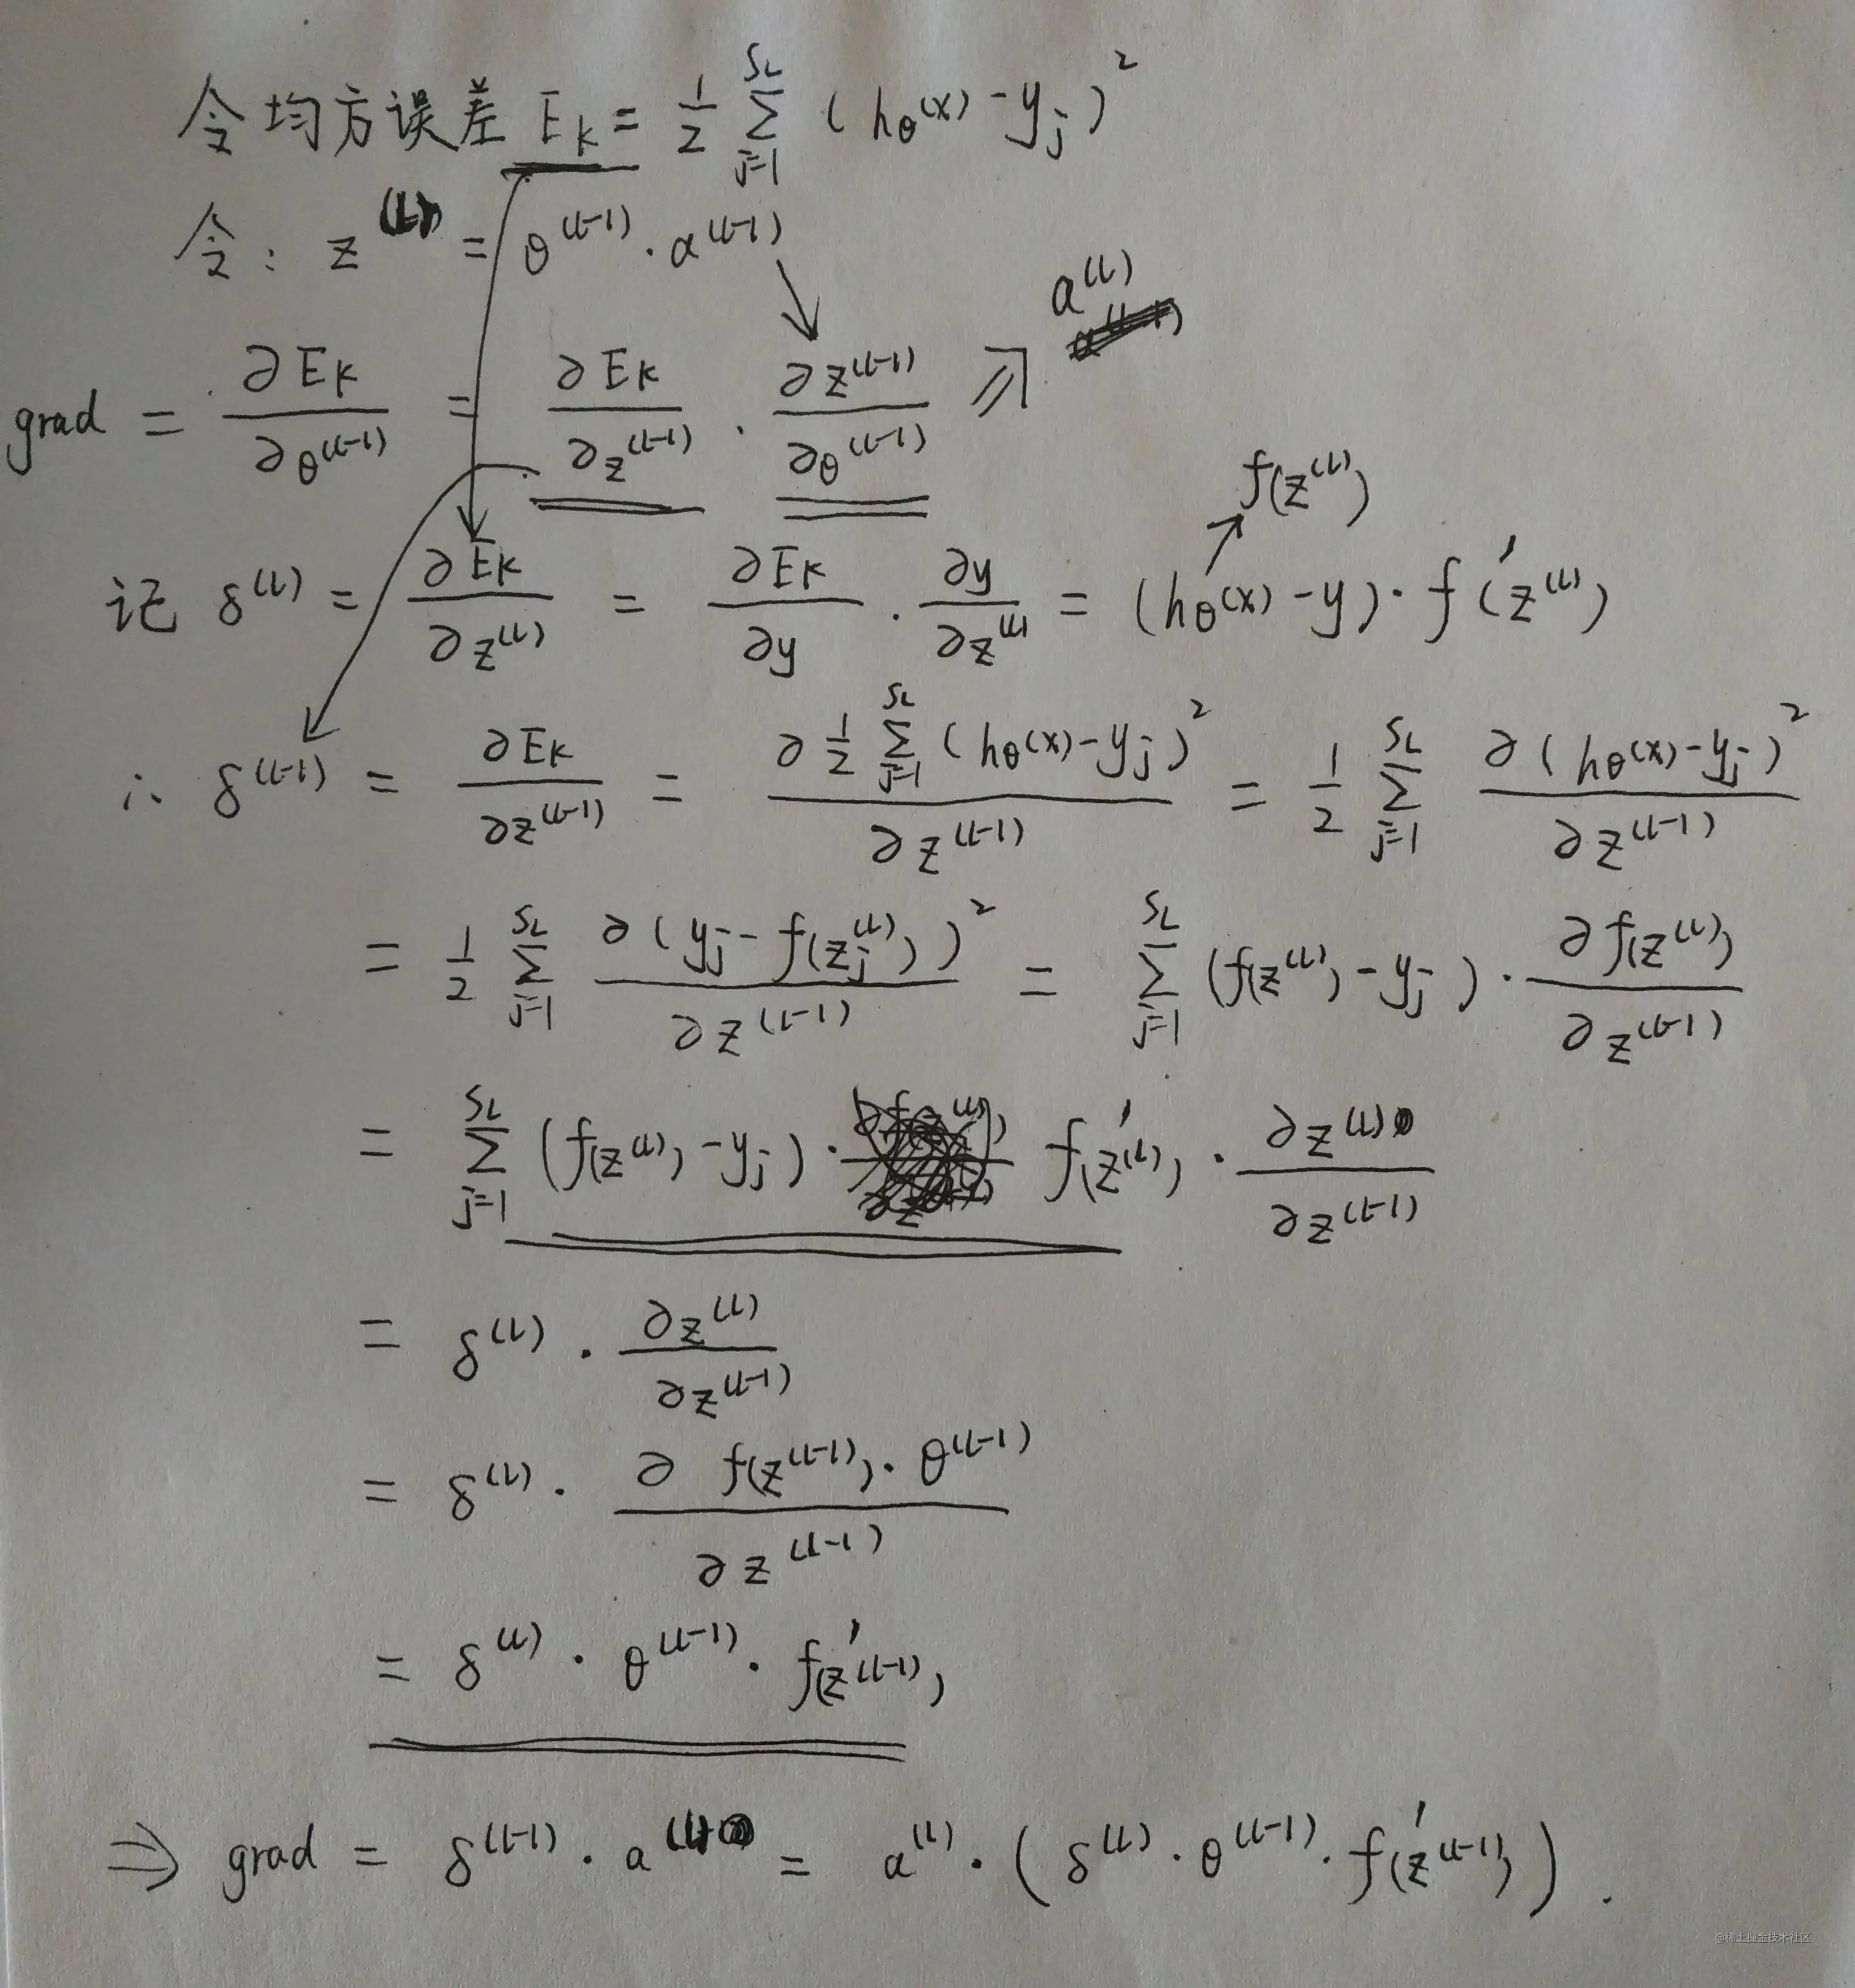 令均方误差 E_K = \frac{1}{2} \sum_{j=1}^{S_L} (h_θ(x) - y_j)^2
令: z^{(L)} = θ^{(L-1)} · a^{(L-1)}
a^{(L)}
grad = \frac{∂E_K}{∂θ^{(L-1)}} = \frac{∂E_K}{∂z^{(L-1)}} · \frac{∂z^{(L-1)}}{∂θ^{(L-1)}} ⇒
f(z^{(L)})
记 δ^{(L)} = \frac{∂E_K}{∂z^{(L)}} = \frac{∂E_K}{∂y} · \frac{∂y}{∂z^{(L)}} = (h_θ(x) - y) · f'(z^{(L)})
∴ δ^{(L-1)} = \frac{∂E_K}{∂z^{(L-1)}} = \frac{∂ \frac{1}{2} \sum_{j=1}^{S_L} (h_θ(x) - y_j)^2}{∂z^{(L-1)}} = \frac{1}{2} \sum_{j=1}^{S_L} \frac{∂(h_θ(x) - y_j)^2}{∂z^{(L-1)}}
= \frac{1}{2} \sum_{j=1}^{S_L} \frac{∂(y_j - f(z_j^{(L)}))^2}{∂z^{(L-1)}} = \sum_{j=1}^{S_L} (f(z^{(L)}) - y_j) · \frac{∂f(z^{(L)})}{∂z^{(L-1)}}
= \sum_{j=1}^{S_L} (f(z^{(L)}) - y_j) · f'(z^{(L)}) · \frac{∂z^{(L)}}{∂z^{(L-1)}}
= δ^{(L)} · \frac{∂z^{(L)}}{∂z^{(L-1)}}
= δ^{(L)} · \frac{∂ f(z^{(L-1)}) · θ^{(L-1)}}{∂z^{(L-1)}}
= δ^{(L)} · θ^{(L-1)} · f'(z^{(L-1)})
⇒ grad = δ^{(L-1)} · a^{(L)} = a^{(L)} · (δ^{(L)} · θ^{(L-1)} · f'(z^{(L-1)})).
@稀土掘金技术社区